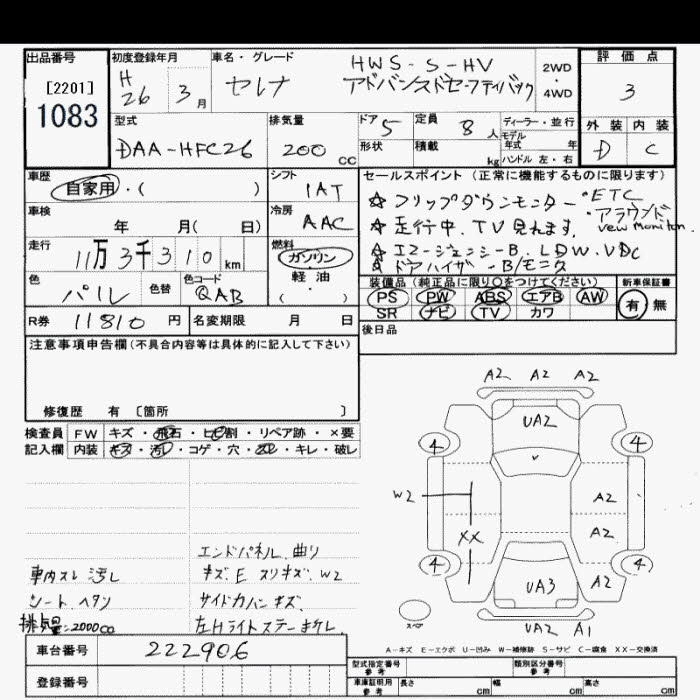 出品番号
[2201]
1083
初度登録年月
H
26 3月
車名・グレード
セレナ
HWS-S-HV
アドバンスドセーフティパック
2WD
・
4WD
評価点
3
外装 内装
D C
型式
DAA-HFC26
排気量
200 CC
ドア 5
形状
定員 8人
積載 kg
ディーラー・並行
モデル
年式 年
ハンドル 左・右
車歴
自家用・( )
シフト
IAT
車検
年 月( 日)
冷房
AAC
走行
11万3千310km
燃料
ガソリン・
軽油
・
色
パール
色替
色コード
QAB
セールスポイント (正常に機能するものに限ります)
☆ フリップダウンモニター ・ETC
☆ 走行中、TV見れます、 ・アラウンド
vew moniton.
☆ エマージェンシーB、LDW、VDC
☆ ドアバイザーB/モニタ
装備品(純正品に限り○をつけてください)
PS PW ABS エアB AW
SR ナビ TV カワ
新車保証書
有 無
R券 11810 円
名変期限 月 日
後日品
注意事項申告欄(不具合内容等は具体的に記入して下さい)
修復歴 有 〔箇所 〕
検査員
記入欄
FW キズ・飛石・ヒビ割・リペア跡・×要
内装 キズ・汚レ・コゲ・穴・スレ・キレ・破レ
エンドパネル 曲り
車内スレ 汚レ
キズ、E スリキズ、W2
シート、ヘタン
サイドカバンキズ、
排気量:2000cc
左Hライトステー
A2 A2 A2
UA2
4 4
W2
A2
XX
A2
4 4
UA3
A2
スペア
UA2 A1
A-キズ E-エクボ U-凹み W-補修跡 S-サビ C-腐食 XX-交換済
車台番号
222906
登録番号
型式指定番号
参考
類別区分番号
参考
車庫証明用
参考
長さ cm
幅 cm
高さ cm